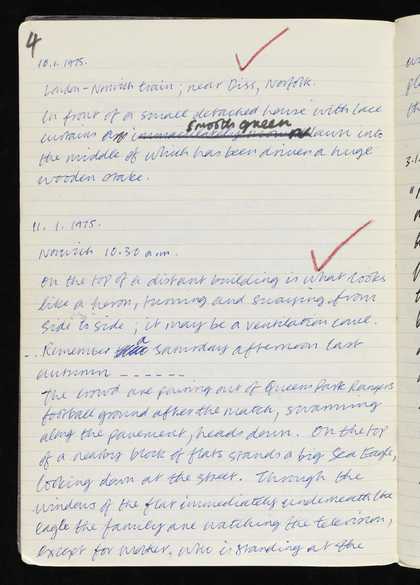 4
10.1.1975.
London-Norwich train; near Diss, Norfolk.
In front of a small detached house with lace
curtains smooth green lawn into
the middle of which has been driven a huge
wooden stake.
11. 1. 1975.
Norwich 10.30 a.m.
On the top of a distant building is what looks
like a heron, turning and swaying from
side to side; it may be a ventilation cowl.
... Remember a Saturday afternoon last
autumn ------
The crowd are pouring out of Queens Park Rangers
football ground after the match, swarming
along the pavement, heads down. On the top
of a nearby block of flats stands a big Sea Eagle,
looking down at the street. Through the
windows of the flat immediately underneath the
eagle the family are watching the television,
except for Mother, who is standing at the
3.1